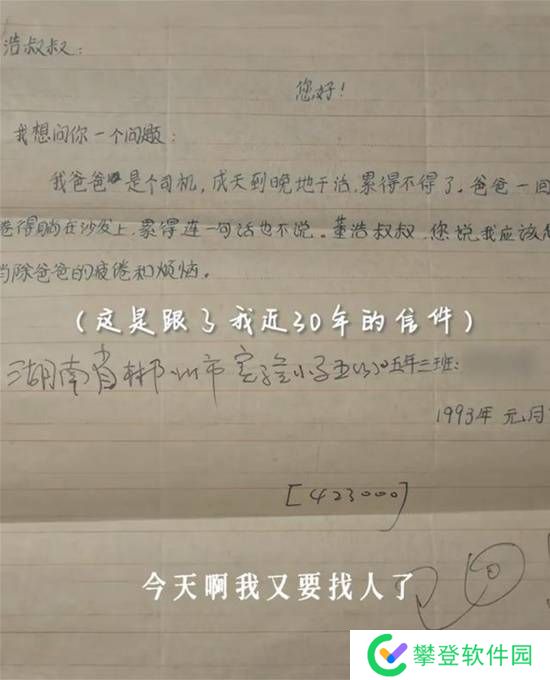 浩叔叔：
您好！
我想问你一个问题：
我爸爸是个司机，成天到晚地干活，累得不得了。爸爸一回
卷得躺在沙发上，累得连一句话也不说。董浩叔叔，您说我应该怎
当除爸爸的疲倦和烦恼。
（这是跟了我近30年的信件）
湖南省郴州市实验小学五年三班：
1993年 元月
[423000]
今天啊我又要找人了
攀登软件园